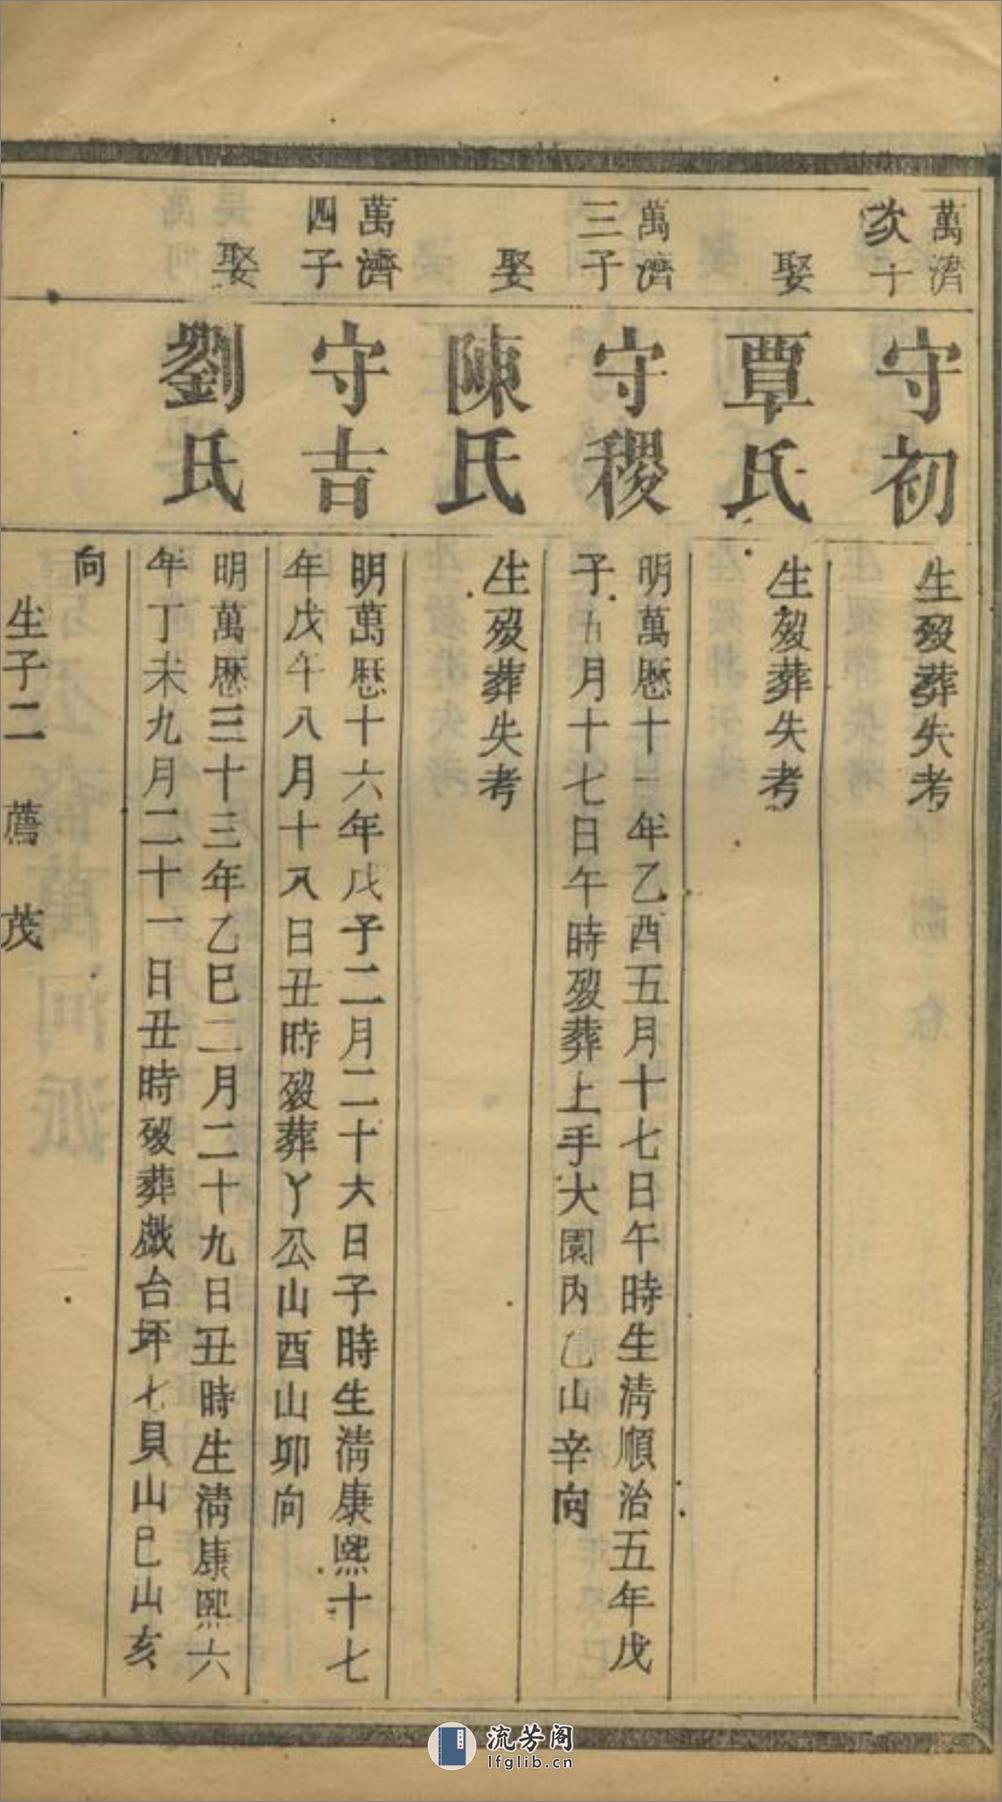 萬濟
次子
守初
生殁葬失考
娶
覃氏
生殁葬失考
萬濟
三子
守稷
明萬厯十三年乙酉五月十七日午時生清順治五年戊
子五月十七日午時殁葬上手大園內乙山辛向
娶
陳氏
生殁葬失考
萬濟
四子
守吉
明萬厯十六年戊子二月二十六日子時生清康熙十七
年戊午八月十八日丑時殁葬丫公山酉山卯向
娶
劉氏
明萬厯三十三年乙巳二月二十九日丑時生清康熙六
年丁未九月二十一日丑時殁葬戲台坪七貝山巳山亥
向
生子二 薦 茂
流芳阁
lfglib.cn